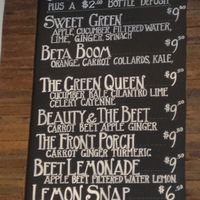 PLUS A $2.00 BOTTLE DEPOSIT
SWEET GREEN $9
APPLE CUCUMBER, FILTERED WATER,
LIME, GINGER SPINACH
BETA BOOM $9
ORANGE, CARROT COLLARDS, KALE,
THE GREEN QUEEN $9
CUCUMBER KALE CILANTRO LIME
CELERY CAYENNE
BEAUTY & THE BEET $9
CARROT BEET APPLE GINGER
THE FRONT PORCH $9
CARROT GINGER TURMERIC
BEET LEMONADE $9
APPLE BEET FILTERED WATER LEMON
LEMON SNAP $6